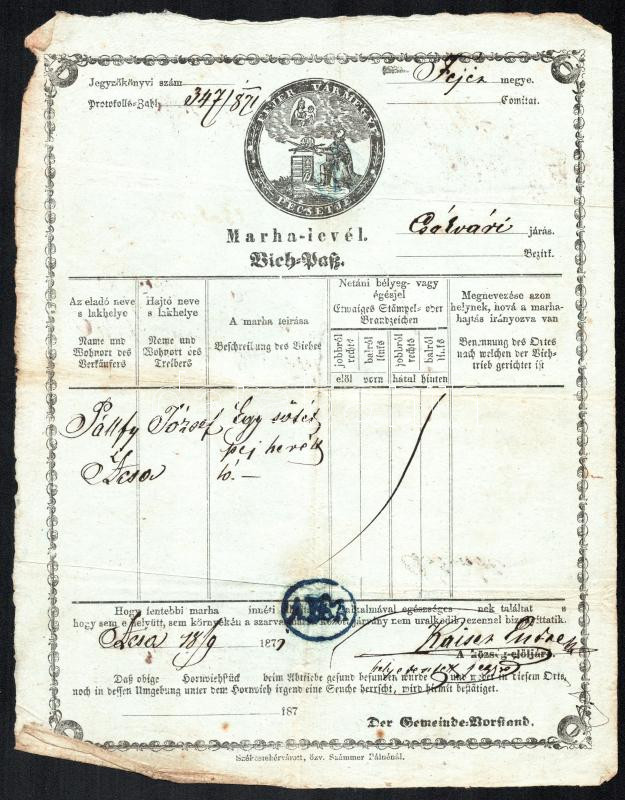 Jegyzőkönyvi szám
Protokolls-Zahl 347/871
Fejér megye.
Comitat.
FEJÉR VÁRMEGYE PECSÉTJE
Csákvári járás.
Bezirk.
Marha-levél.
Vieh-Paß.
Az eladó neve s lakhelye
Name und Wohnort des Verkäufers
Hajtó neve s lakhelye
Name und Wohnort des Treibers
A marha leirása
Beschreibung des Viehes
Netáni bélyeg- vagy égésjel
Etwaiges Stämpel- oder Brandzeichen
jobbról rechts
balról links
jobbról rechts
balról links
elöl vorn
hátul hinten
Megnevezése azon helynek, hová a marha-hajtás irányozva van
Benennung des Ortes nach welchen der Vieh-trieb gerichtet ist
Pálffy József Egy sötét
pej herélt
Acsa ló.—
Hogy fentebbi marha innéti alkalmával egészségesnek találtatott s
hogy sem e helyütt, sem környékén a szarvasmarhák között járvány nem uralkodik, ezennel bizonyíttatik.
Acsa 18/9 187
A község-elöljáró.
helyettes jegyző
Daß obige Hornviehstück beim Abtriebe gesund befunden wurde und weder in diesem Orte,
noch in dessen Umgebung unter dem Hornvieh irgend eine Seuche herrscht, wird hiemit bestätiget.
187
Der Gemeinde-Vorstand.
Székesfehérvárott, özv. Számmer Pálnénál.